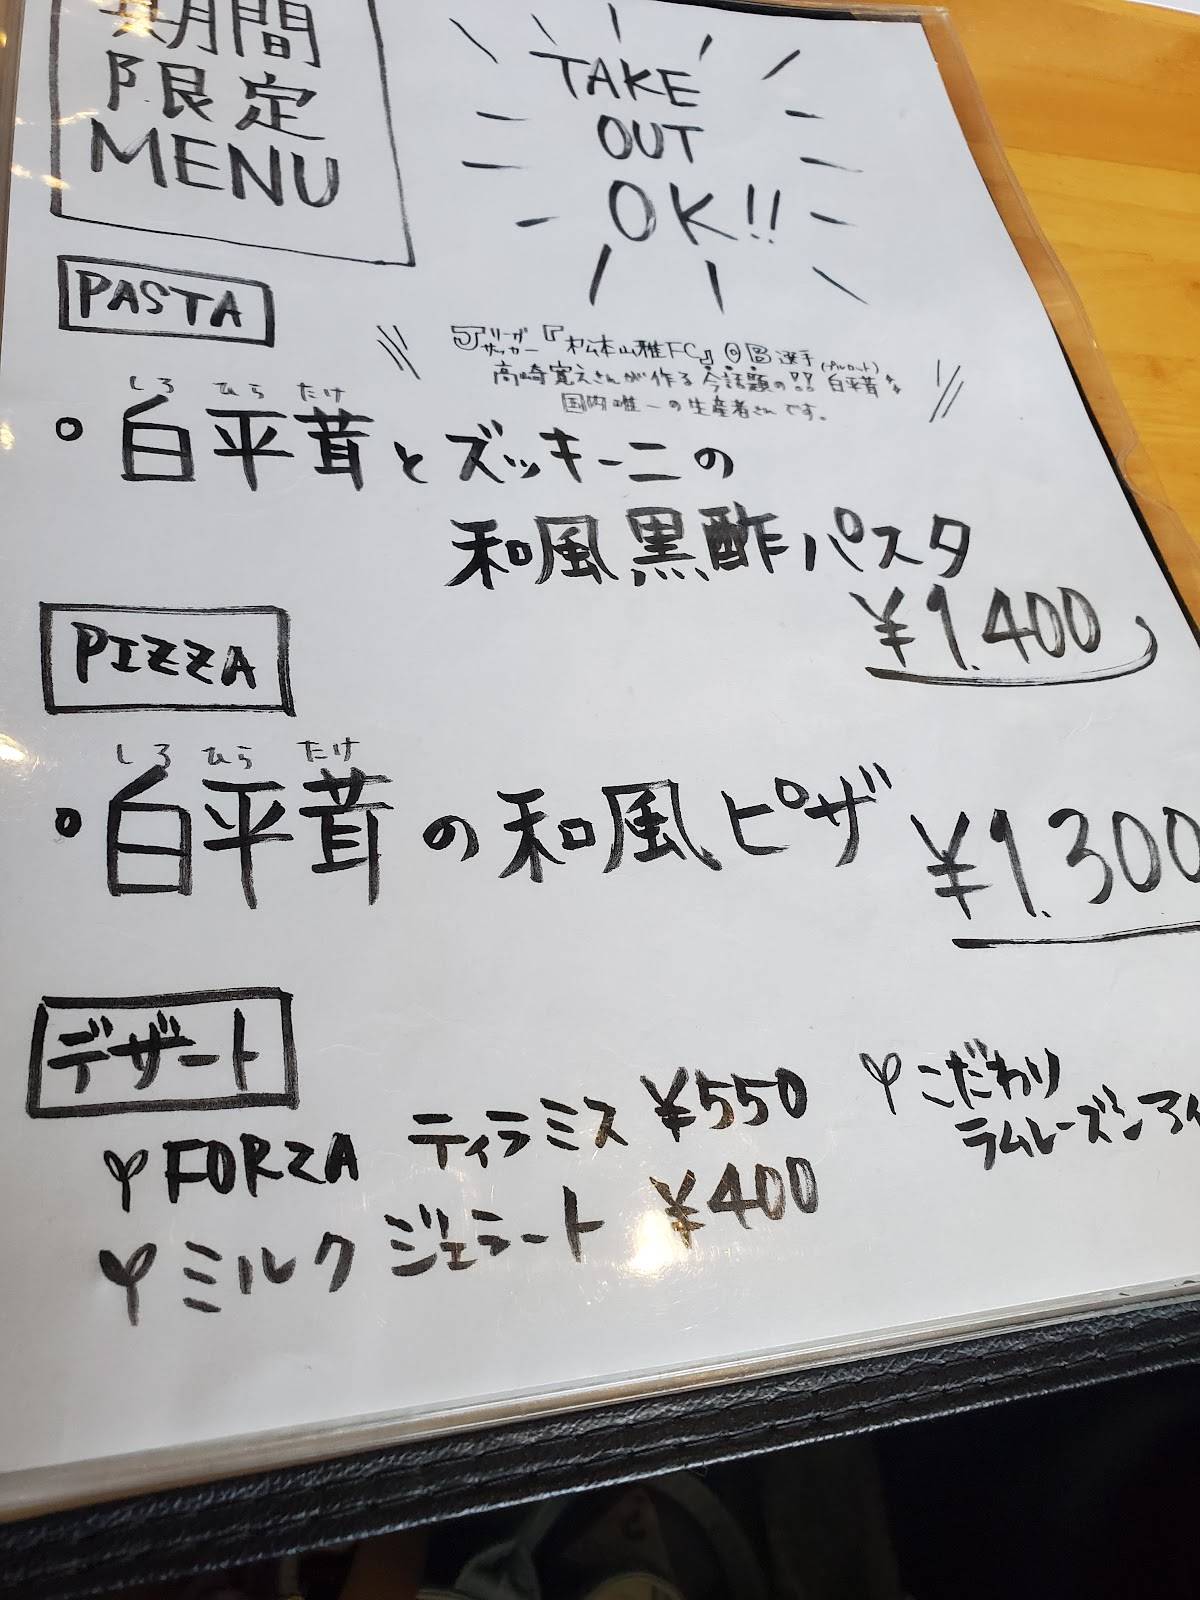 期間
限定
MENU
TAKE
OUT
OK!!
PASTA
Jリーグサッカー『松本山雅FC』OB選手
高崎寛之さんが作る今話題の!? 白平茸(プルロット)
国内唯一の生産者さんです。
しろ ひら たけ
白平茸とズッキーニの
和風黒酢パスタ
¥1.400
PIZZA
しろ ひら たけ
白平茸の和風ピザ ¥1.300
デザート
FORZA ティラミス ¥550
ミルク ジェラート ¥400
こだわり
ラムレーズンアイ